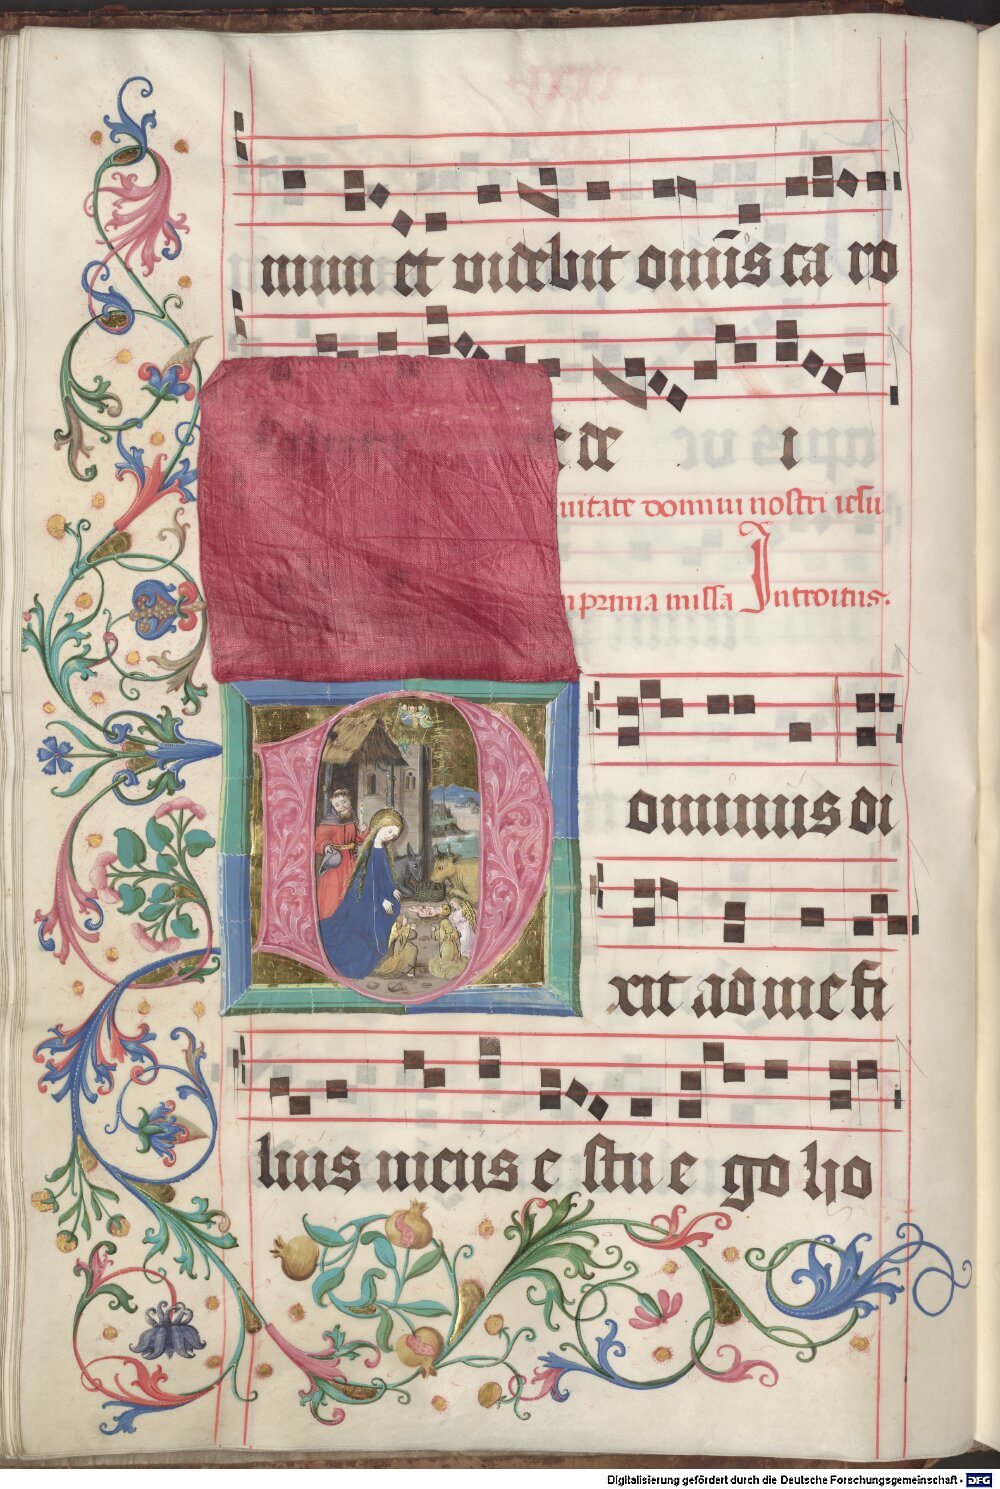 mum et videbit om̄is ca ro
de i
uitate domini nostri iesu
prima missa Introitus.
ominus di
xit ad me fi
lius meus e stu e go ho
Digitalisierung gefördert durch die Deutsche Forschungsgemeinschaft - DFG